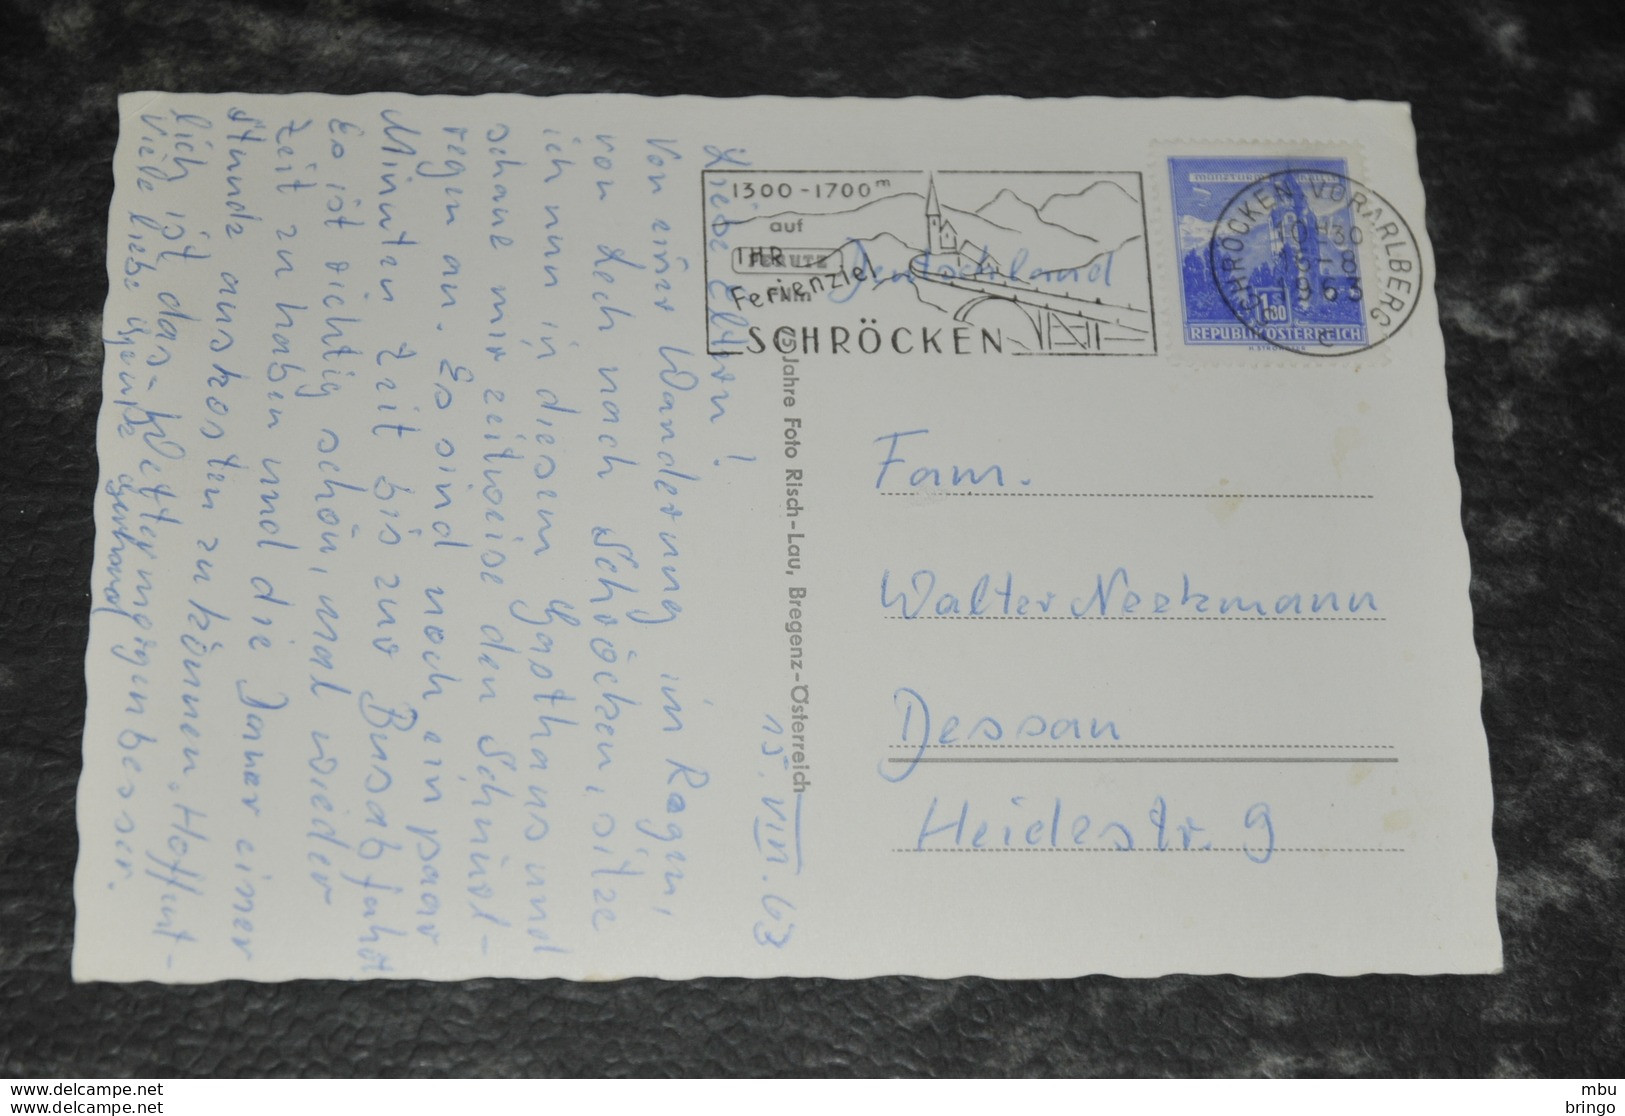 15. VIII. 63
Liebe Eltern!
Von einer Wanderung im Regen,
von Lech nach Schröcken, sitze
ich nun in diesem Gasthaus und
schaue mir zeitweise den Schnürl-
regen an. Es sind noch ein paar
Minuten Zeit bis zur Busabfahrt
Es ist richtig schön, mal wieder
Zeit zu haben und die Dauer einer
Stunde auskosten zu können. Hoffent-
lich ist das Wetter morgen besser.
Viele liebe Grüße Gerhard
75 Jahre Foto Risch-Lau, Bregenz-Österreich
1300-1700m
auf
IHR
Ferienziel
SCHRÖCKEN
Deutschland
SCHRÖCKEN VORARLBERG
1963
1.80
REPUBLIK ÖSTERREICH
Fam.
Walter Neekmann
Dessau
Heidestr. 9
www.delcampe.net
www.delcampe.net
mbu
bringo